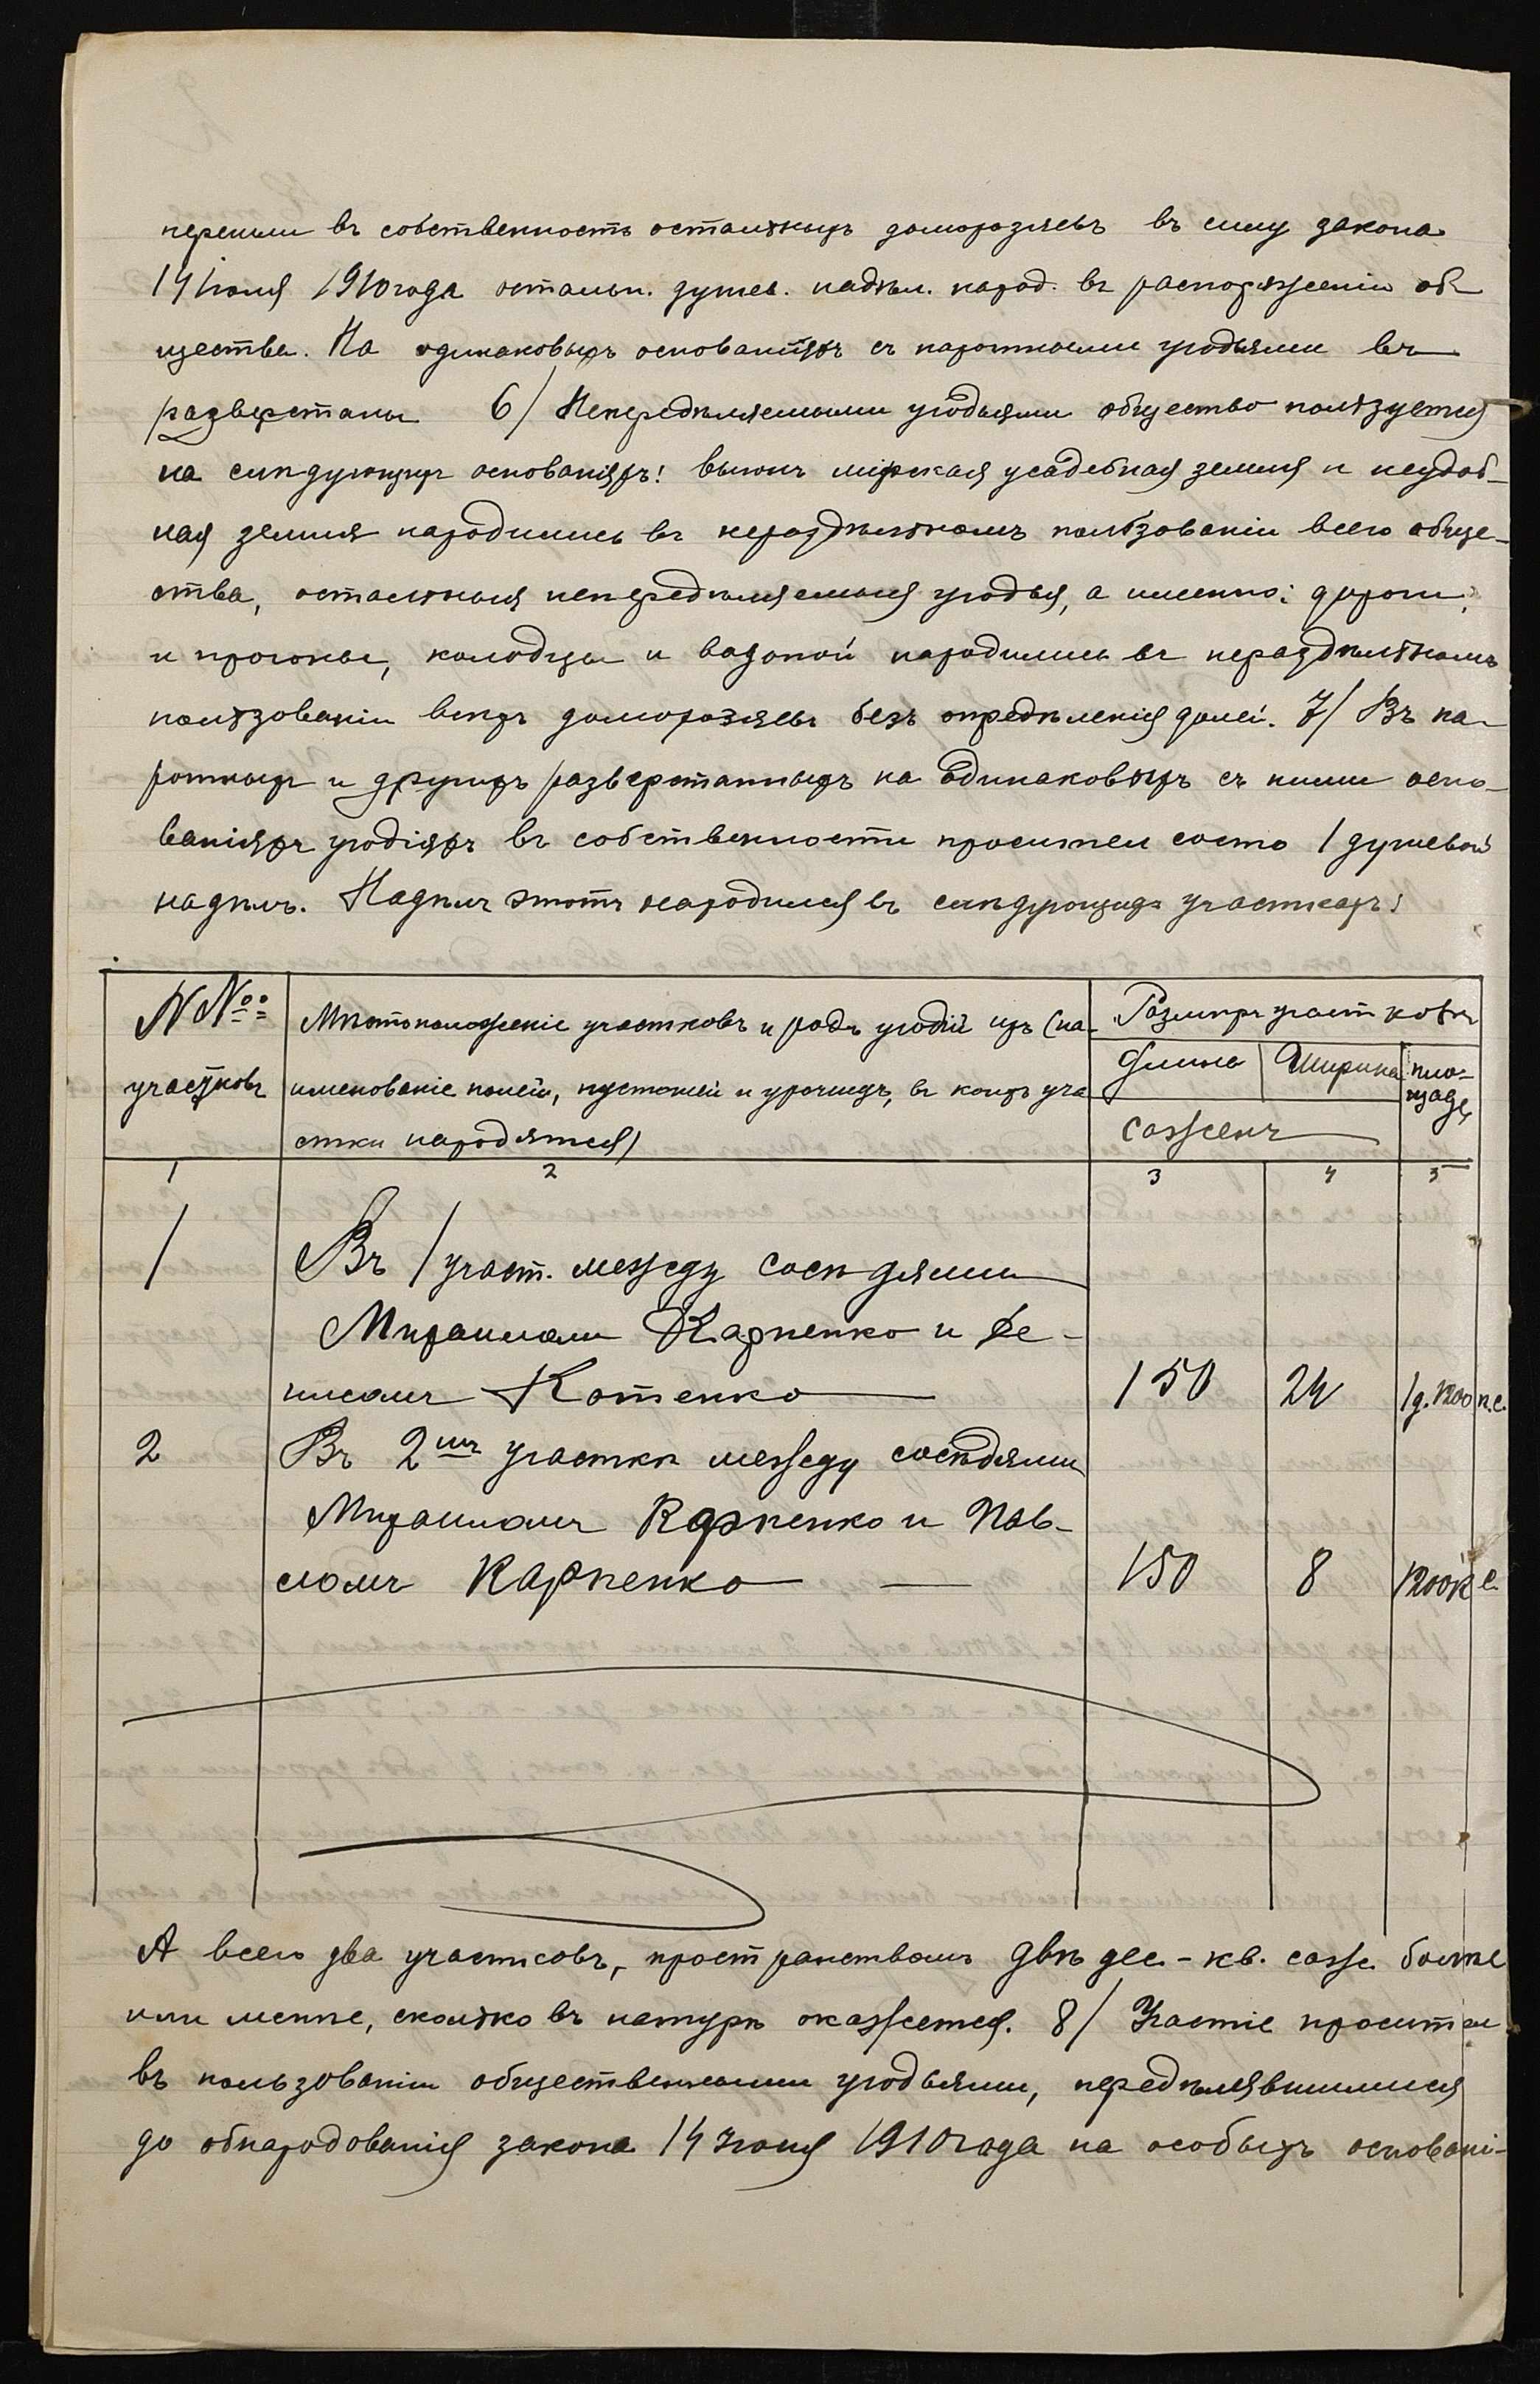 перешли въ собственность остальныхъ домохозяевъ въ силу закона
14 Iюня 1910 года остальн. душев. надѣл. наход. въ распоряженіи об
щества. На одинаковыхъ основаніяхъ съ пахотными угодьями въ
разверстаны 6/ Непередѣляемыми угодьями общество пользуется
на слѣдующихъ основаніяхъ: выгонъ мірская усадебная земля и неудоб-
ная земля находились въ нераздѣльномъ пользованіи всего обще-
ства, остальныя непередѣляемыя угодья, а именно: дороги,
и прогоны, колодцы и водопой находились въ нераздѣльномъ
пользованіи всѣхъ домохозяевъ безъ опредѣленія долей. 7/ Въ па-
хотныхъ и другихъ разверстанныхъ на одинаковыхъ съ ними осно-
ваніяхъ угодіяхъ въ собственности просителя состо 1 душевой
надѣлъ. Надѣлъ этотъ находился въ слѣдующихъ участкахъ:
NN⁰⁰ Мѣстоположеніе участковъ и родъ угодій ихъ (на- Размѣръ участковъ
участковъ именованіе полей, пустошей и урочищъ, въ коихъ уча Длина Ширина пло-
щадь
стки находятся) сажень
1 2 3 4 5
1 Въ 1 участ. между сосѣдями
Михаиломъ Карпенко и Де-
нисомъ Котенко 150 24 1 д. 1200 к.с.
2 Въ 2мъ участкѣ между сосѣдями
Михаиломъ Карпенко и Пав-
ломъ Карпенко 150 8 1200 к с.
А всего два участковъ, пространствомъ двѣ дес - кв. саж. болѣе
или менѣе, сколько въ натурѣ окажется. 8/ Участіе просителя
въ пользованіи общественными угодьями, передѣлявшимися
до обнародованія закона 14 Iюня 1910 года на особыхъ основані-